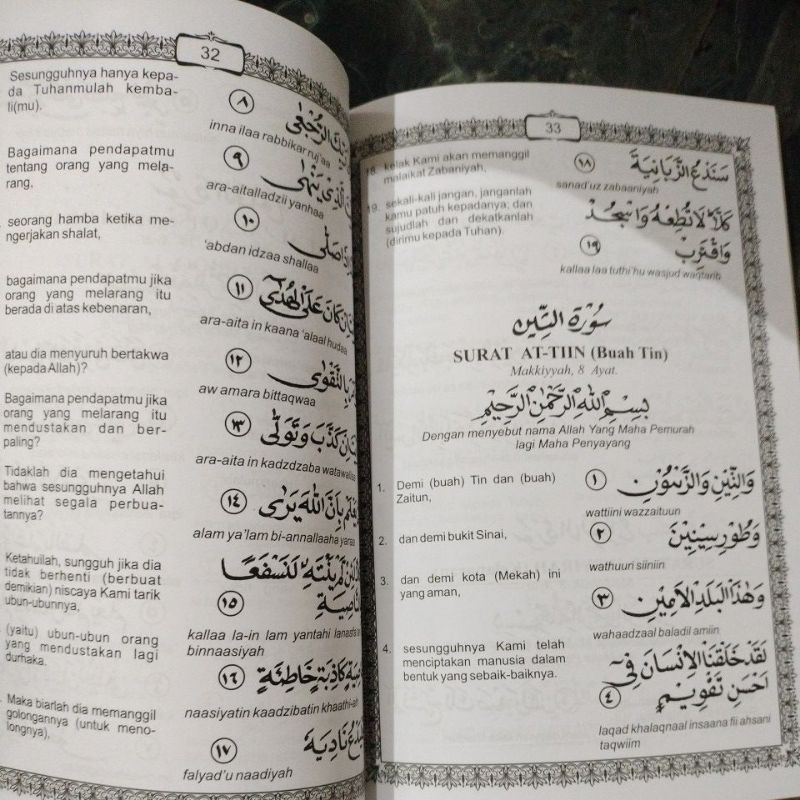 32
Sesungguhnya hanya kepa-
da Tuhanmulah kemba-
li(mu).
٨ الرُّجْعٰى
inna ilaa rabbikar ruj'aa
Bagaimana pendapatmu
tentang orang yang mela-
rang,
٩ الَّذِيْ يَنْهٰى
ara-aitalladzii yanhaa
seorang hamba ketika me-
ngerjakan shalat,
١٠ صَلّٰى
'abdan idzaa shallaa
bagaimana pendapatmu jika
orang yang melarang itu
berada di atas kebenaran,
١١ اِنْ كَانَ عَلَى الْهُدٰى
ara-aita in kaana 'alaal hudaa
atau dia menyuruh bertakwa
(kepada Allah)?
١٢ بِالتَّقْوٰى
aw amara bittaqwaa
Bagaimana pendapatmu jika
orang yang melarang itu
mendustakan dan ber-
paling?
١٣ اِنْ كَذَّبَ وَتَوَلّٰى
ara-aita in kadzdzaba watawallaa
Tidaklah dia mengetahui
bahwa sesungguhnya Allah
melihat segala perbua-
tannya?
١٤ بِاَنَّ اللّٰهَ يَرٰى
alam ya'lam bi-annallaaha yaraa
Ketahuilah, sungguh jika dia
tidak berhenti (berbuat
demikian) niscaya Kami tarik
ubun-ubunnya,
لَمْ يَنْتَهِ لَنَسْفَعًا
١٥
kallaa la-in lam yantahi lanasfa'an
binnaasiyah
(yaitu) ubun-ubun orang
yang mendustakan lagi
durhaka.
١٦ كَاذِبَةٍ خَاطِئَةٍ
naasiyatin kaadzibatin khaathi-ah
Maka biarlah dia memanggil
golongannya (untuk meno-
longnya),
١٧ نَادِيَهٗ
falyad'u naadiyah
33
18. kelak Kami akan memanggil
malaikat Zabaniyah,
سَنَدْعُ الزَّبَانِيَةَ ١٨
sanad'uz zabaaniyah
19. sekali-kali jangan, janganlah
kamu patuh kepadanya; dan
sujudlah dan dekatkanlah
(dirimu kepada Tuhan).
كَلَّا لَا تُطِعْهُ وَاسْجُدْ
وَاقْتَرِبْ ١٩
kallaa laa tuthi'hu wasjud waqtarib
سُوْرَةُ التِّيْنِ
SURAT AT-TIIN (Buah Tin)
Makkiyyah, 8 Ayat.
بِسْمِ اللّٰهِ الرَّحْمٰنِ الرَّحِيْمِ
Dengan menyebut nama Allah Yang Maha Pemurah
lagi Maha Penyayang
1. Demi (buah) Tin dan (buah)
Zaitun,
وَالتِّيْنِ وَالزَّيْتُوْنِ ١
wattiini wazzaituun
2. dan demi bukit Sinai,
وَطُوْرِ سِيْنِيْنَ ٢
wathuuri siiniin
3. dan demi kota (Mekah) ini
yang aman,
وَهٰذَا الْبَلَدِ الْاَمِيْنِ ٣
wahaadzaal baladil amiin
4. sesungguhnya Kami telah
menciptakan manusia dalam
bentuk yang sebaik-baiknya.
لَقَدْ خَلَقْنَا الْاِنْسَانَ فِيْ
اَحْسَنِ تَقْوِيْمٍ ٤
laqad khalaqnaal insaana fii ahsani
taqwiim